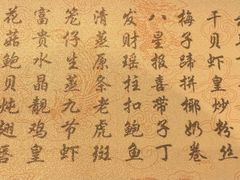 干贝虾皇粉丝
梅子蹄拼椰奶卷
八星报喜带子丁
发财瑶柱扣鲍鱼
清蒸原条老虎斑
笼仔生蒸九节虾
富贵水晶靓鸡皇
花菇鲍贝炖翅唇